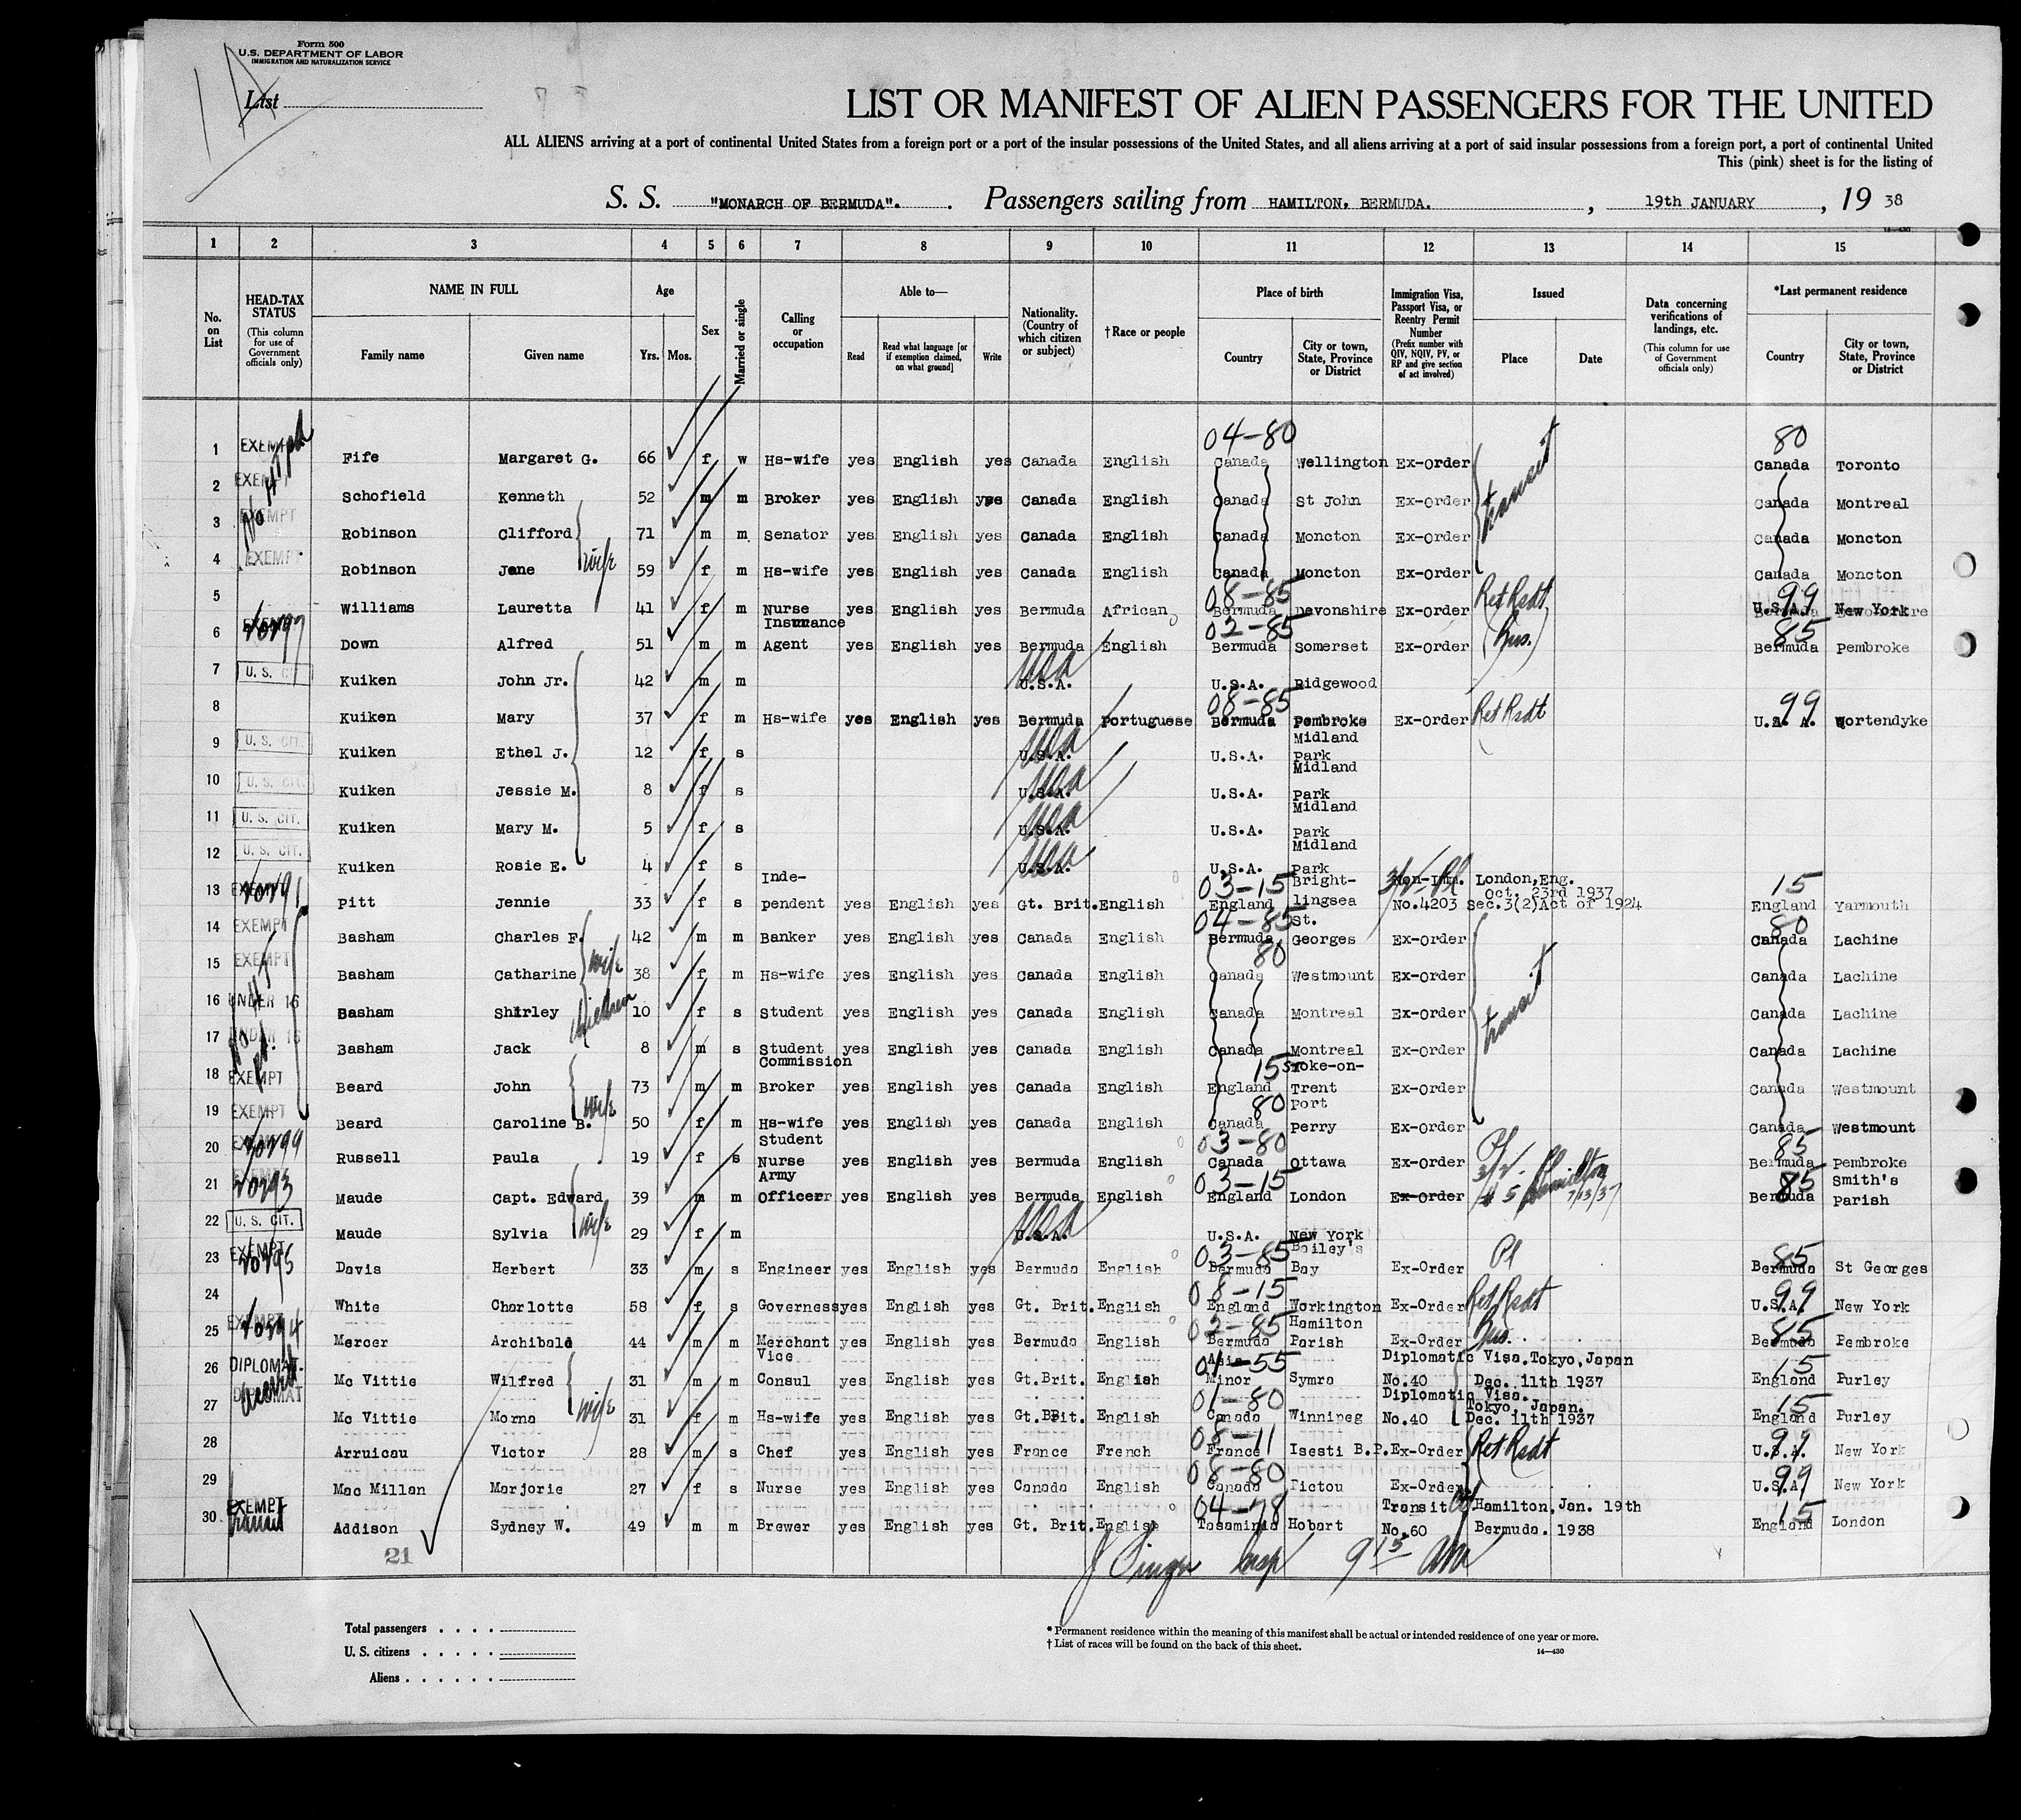 Form 500
U.S. DEPARTMENT OF LABOR
IMMIGRATION AND NATURALIZATION SERVICE
List
LIST OR MANIFEST OF ALIEN PASSENGERS FOR THE UNITED
ALL ALIENS arriving at a port of continental United States from a foreign port or a port of the insular possessions of the United States, and all aliens arriving at a port of said insular possessions from a foreign port, a port of continental United
This (pink) sheet is for the listing of
S. S. "MONARCH OF BERMUDA". Passengers sailing from HAMILTON, BERMUDA. , 19th JANUARY , 19 38
1 2 3 4 5 6 7 8 9 10 11 12 13 14 15
No. on List
HEAD-TAX STATUS (This column for use of Government officials only)
NAME IN FULL Family name Given name
Age Yrs. Mos.
Sex
Married or single
Calling or occupation
Able to— Read Read what language [or if exemption claimed, on what ground] Write
Nationality. (Country of which citizen or subject)
†Race or people
Place of birth Country City or town, State, Province or District
Immigration Visa, Passport Visa, or Reentry Permit Number (Prefix number with QIV, NQIV, PV, or RP and give section of act involved)
Issued Place Date
Data concerning verifications of landings, etc. (This column for use of Government officials only)
*Last permanent residence Country City or town, State, Province or District
1 EXEMPT Fife Margaret G. 66 f w Hs-wife yes English yes Canada English 04-80 Canada Wellington Ex-Order transit 80 Canada Toronto
2 EXEMPT Schofield Kenneth 52 m m Broker yes English yes Canada English Canada St John Ex-Order Canada Montreal
3 EXEMPT Robinson Clifford 71 m m Senator yes English yes Canada English Canada Moncton Ex-Order Canada Moncton
4 EXEMPT Robinson Jane wife 59 f m Hs-wife yes English yes Canada English Canada Moncton Ex-Order Canada Moncton
5 Williams Lauretta 41 f m Nurse yes English yes Bermuda African 08-85 Bermuda Devonshire Ex-Order Ret Rsdt 99 U.S.A. New York
6 Down Alfred 51 m m Insurance Agent yes English yes Bermuda English 02-85 Bermuda Somerset Ex-Order (Bus.) 85 Bermuda Pembroke
7 U. S. CIT. Kuiken John Jr. 42 m m USA U.S.A. U.S.A. Ridgewood
8 Kuiken Mary 37 f m Hs-wife yes English yes Bermuda Portuguese 08-85 Bermuda Pembroke Ex-Order Ret Rsdt 99 U.S.A. Wortendyke
9 U. S. CIT. Kuiken Ethel J. 12 f s USA U.S.A. U.S.A. Midland Park
10 U. S. CIT. Kuiken Jessie M. 8 f s USA U.S.A. U.S.A. Midland Park
11 U. S. CIT. Kuiken Mary M. 5 f s USA U.S.A. U.S.A. Midland Park
12 U. S. CIT. Kuiken Rosie E. 4 f s USA U.S.A. U.S.A. Midland Park
13 EXEMPT Pitt Jennie 33 f s Inde-pendent yes English yes Gt. Brit. English 03-15 England Bright-lingsea Non-Imm. No.4203 London,Eng. Oct. 23rd 1937 Sec.3(2)Act of 1924 15 England Yarmouth
14 EXEMPT Basham Charles F. 42 m m Banker yes English yes Canada English 04-85 Bermuda St. Georges Ex-Order transit 80 Canada Lachine
15 EXEMPT Basham Catharine wife 38 f m Hs-wife yes English yes Canada English 80 Canada Westmount Ex-Order Canada Lachine
16 UNDER 16 Basham Shirley children 10 f s Student yes English yes Canada English Canada Montreal Ex-Order Canada Lachine
17 UNDER 16 Basham Jack 8 m s Student yes English yes Canada English Canada Montreal Ex-Order Canada Lachine
18 EXEMPT Beard John 73 m m Commission Broker yes English yes Canada English 15 England Stoke-on-Trent Ex-Order Canada Westmount
19 EXEMPT Beard Caroline B. wife 50 f m Hs-wife yes English yes Canada English 80 Canada Port Perry Ex-Order Canada Westmount
20 Russell Paula 19 f s Student Nurse yes English yes Bermuda English 03-80 Canada Ottawa Ex-Order 85 Bermuda Pembroke
21 Maude Capt. Edward 39 m m Army Officer yes English yes Bermuda English 03-15 England London Ex-Order Hamilton 7/13/37 85 Bermuda Smith's Parish
22 U. S. CIT. Maude Sylvia wife 29 f m USA U.S.A. U.S.A. New York
23 EXEMPT Davis Herbert 33 m s Engineer yes English yes Bermuda English 03-85 Bermuda Bailey's Bay Ex-Order Pl 85 Bermuda St Georges
24 White Charlotte 58 f s Governess yes English yes Gt. Brit. English 08-15 England Workington Ex-Order Ret Rsdt 99 U.S.A. New York
25 EXEMPT Mercer Archibald 44 m m Merchant yes English yes Bermuda English 02-85 Bermuda Hamilton Parish Ex-Order Bus. 85 Bermuda Pembroke
26 DIPLOMAT. Mc Vittie Wilfred 31 m m Vice Consul yes English yes Gt.Brit. English 01-55 Asia Minor Symra Diplomatic Visa.Tokyo,Japan No.40 Dec. 11th 1937 15 England Purley
27 DIPLOMAT Mc Vittie Morna wife 31 f m Hs-wife yes English yes Gt.BBit. English 01-80 Canada Winnipeg Diplomatic Visa. Tokyo, Japan. No.40 Dec. 11th 1937 15 England Purley
28 Arruicau Victor 28 m s Chef yes English yes France French 08-11 France Isesti B.P. Ex-Order Ret Rsdt 99 U.S.A. New York
29 Mac Millan Marjorie 27 f s Nurse yes English yes Canada English 08-80 Canada Pictou Ex-Order 99 U.S.A. New York
30 EXEMPT transit Addison Sydney W. 49 m m Brewer yes English yes Gt. Brit. English 04-78 Tasaminia Hobart Transit No.60 Hamilton, Jan. 19th Bermuda. 1938 15 England London
21
9 15 AM
Total passengers . . . .
U. S. citizens . . . . .
Aliens . . . . . .
* Permanent residence within the meaning of this manifest shall be actual or intended residence of one year or more.
† List of races will be found on the back of this sheet.
14—430